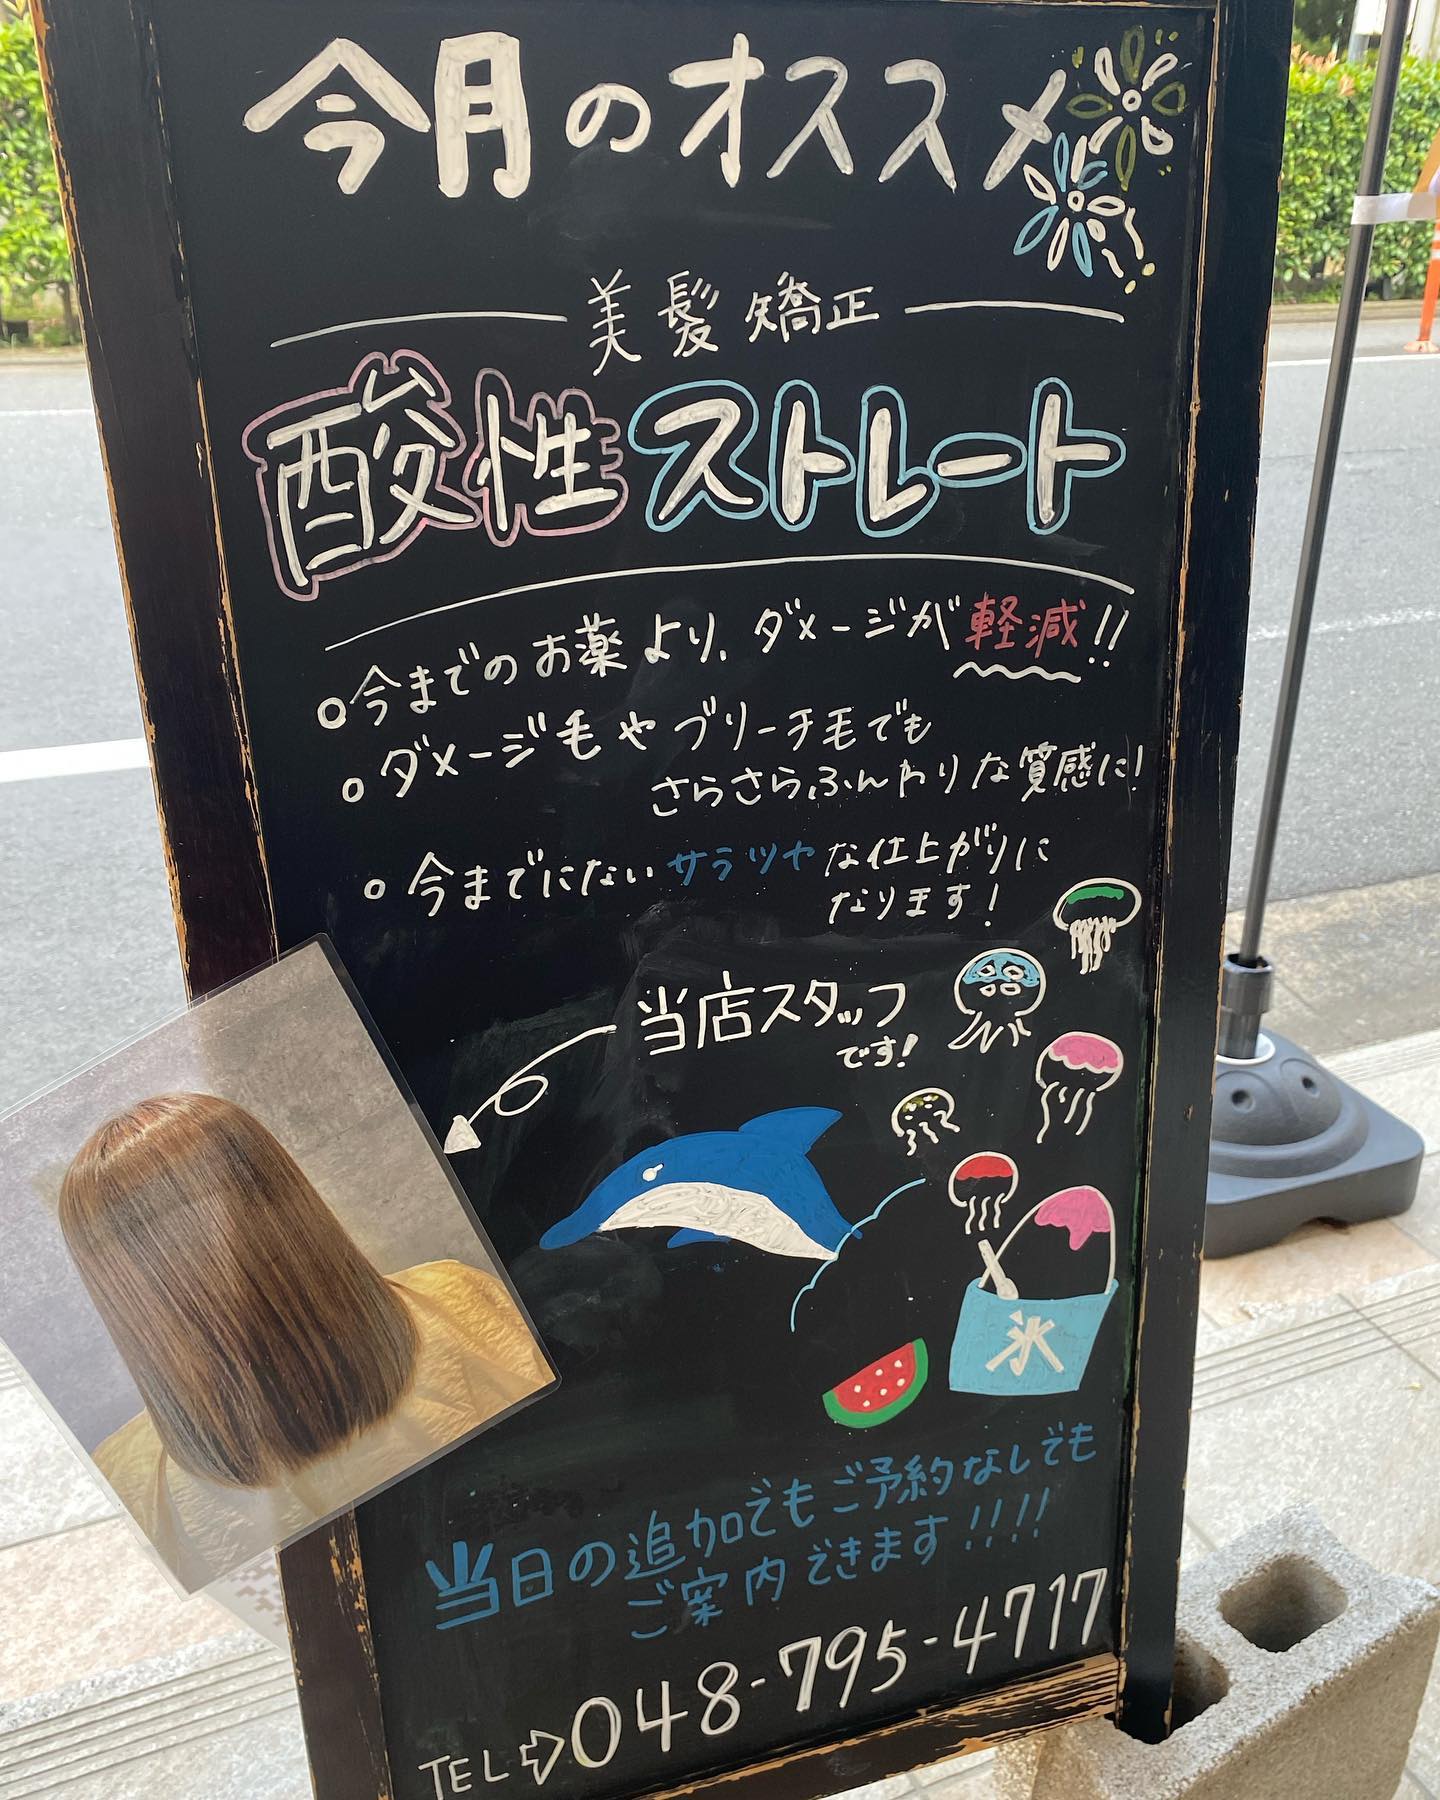 今月のオススメ
美髪矯正
酸性ストレート
○今までのお薬より、ダメージが軽減!!
○ダメージ毛やブリーチ毛でも
さらさら、ふんわりな質感に!
○今までにないサラツヤな仕上がりに
なります!
当店スタッフ
です!
氷
当日の追加でもご予約なしでも
ご案内できます!!!!
TEL⇨048-795-4717